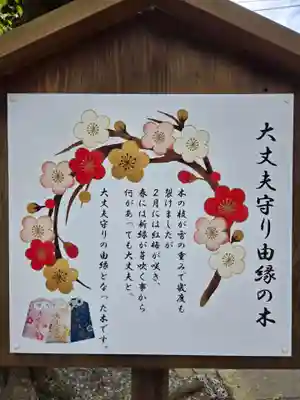 大丈夫守り由縁の木
木の枝が雪の重みで幾度も
裂けましたが
2月には紅梅が咲き、
春には新緑が芽吹く事から
何があっても大丈夫と、
大丈夫守りの由縁となった木です。